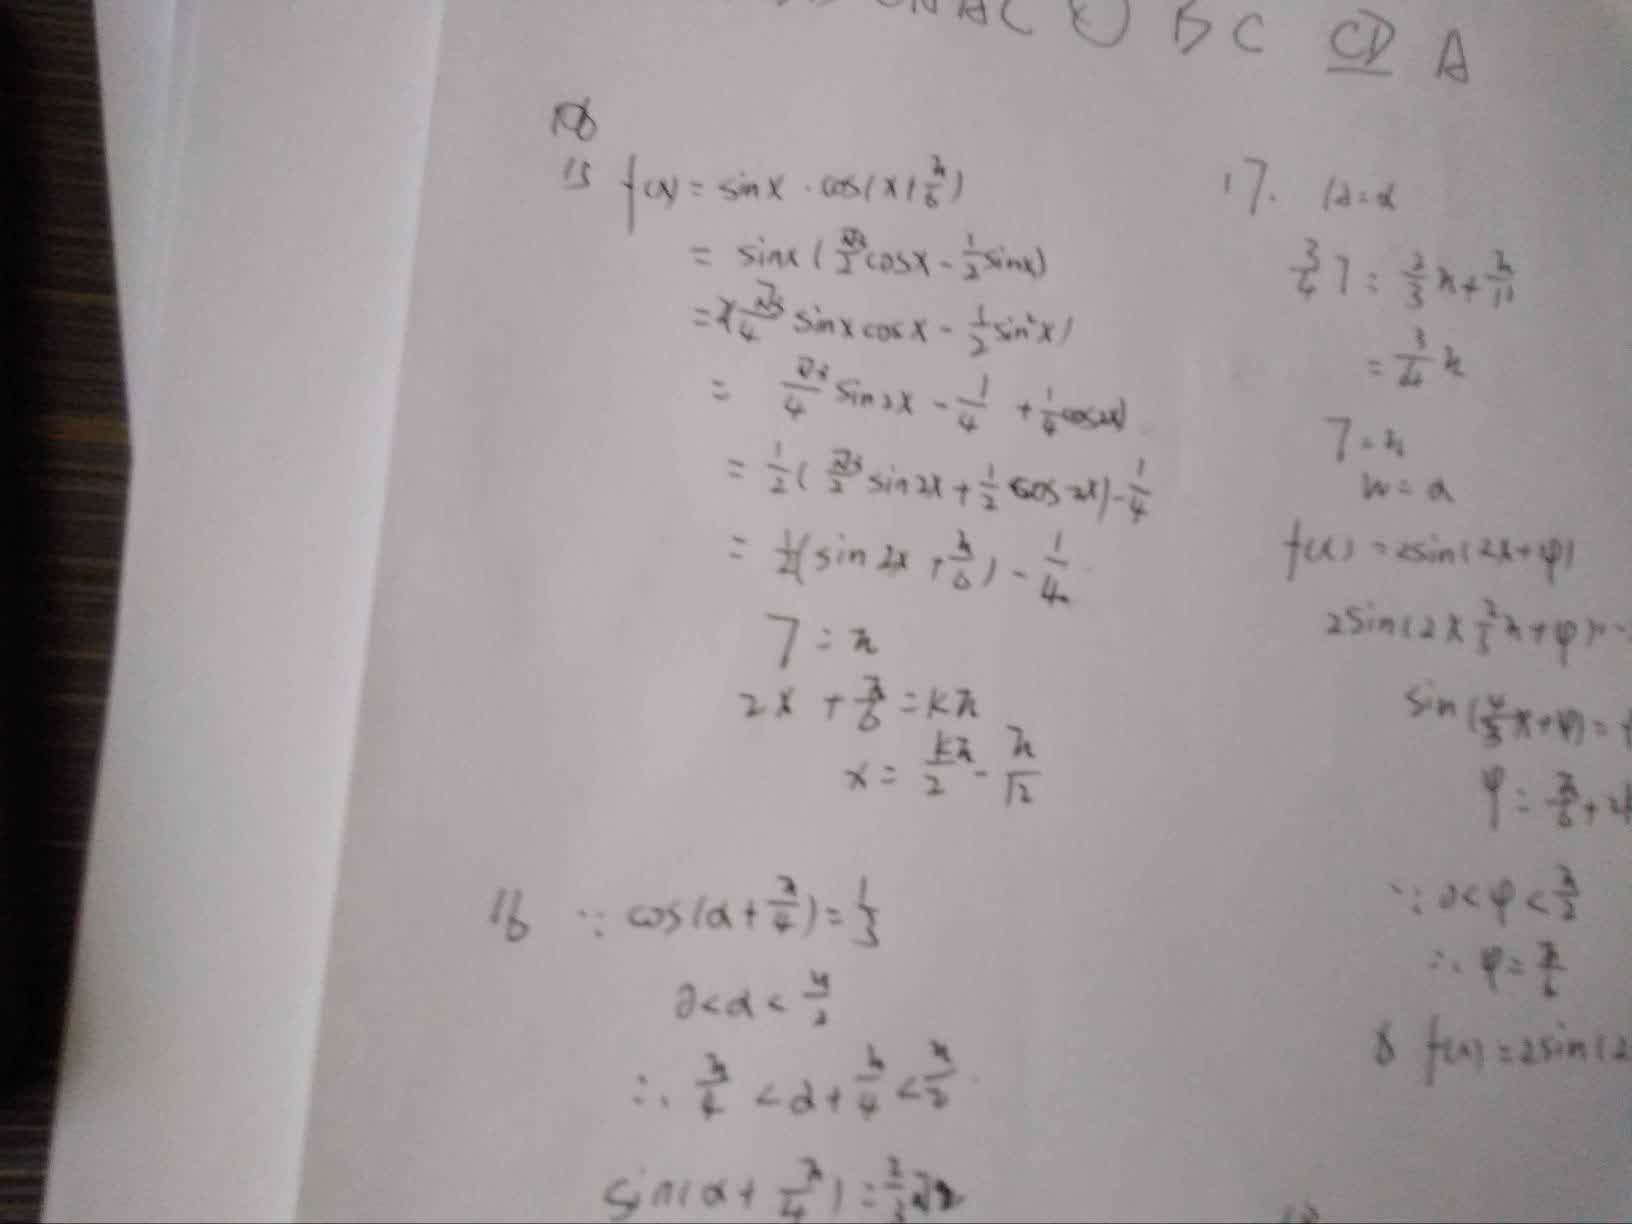 BC CD A
15 f(x) = sinx · cos(x+π/6)
= sinx(√3/2 cosx - 1/2 sinx)
= √3/4 sinxcosx - 1/2 sin²x)
= √3/4 sin2x - 1/4 + 1/4 cos2x)
= 1/2(√3/2 sin2x + 1/2 cos2x) - 1/4
= 1/2(sin2x + π/6) - 1/4
T = π
2x + π/6 = kπ
x = kπ/2 - π/12
16 ∵ cos(α+π/4) = 1/3
0<α<π/2
∴ π/4 < α+π/4 < π/2
sin(α+π/4) = 2/3√2
17. |A=2
3/4 T = 2/3 π + π/12
= 3/4 π
T = π
w = 2
f(x) = 2sin(2x+φ)
2sin(2×2/3π+φ) = -
sin(4/3π+φ) =
φ = π/6 + 2k
∵ 0<φ<π/2
∴ φ = π/6
f(x) = 2sin(2